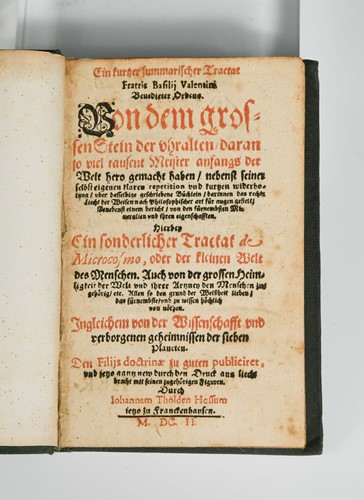 Ein kurtzer summarischer Tractat
Fratris Basilij Valentini
Benedicter Ordens.
Von dem gros-
sen Stein der vhralten / daran
so viel tausent Meister anfangs der
Welt hero gemacht haben / nebenst seiner
selbst eigenen klaren repetition vnd kurtzen widerho-
lung / vber dasselbige geschriebene Büchlein / darinnen das rechte
Liecht der Weisen nach Philosophischer art für augen gestelt /
Benebenst einem bericht / von den fürnembsten Mi-
neralien vnd ihren eigenschafften.
Hierbey
Ein sonderlicher Tractat de
Microcosmo, oder der kleinen Welt
des Menschen. Auch von der grossen Heim-
ligkeit der Welt vnd ihrer Artzney den Menschen zu-
gehörig / etc. Allen so den grund der Weißheit lieben /
das fürnembste / vnd zu wissen höchlich
von nöten.
Ingleichem von der Wissenschafft vnd
verborgenen geheimnissen der sieben
Planeten.
Den Filijs doctrinæ zu guten publiciret,
vnd jetzo gantz new durch den Druck ans liecht
bracht mit seinen zugehörigen Figuren.
Durch
Iohannem Thölden Hessum
jetzo zu Franckenhausen.
M. DC. II.